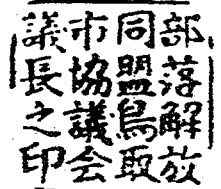 部落解放
同盟鳥取
市協議会
議長之印